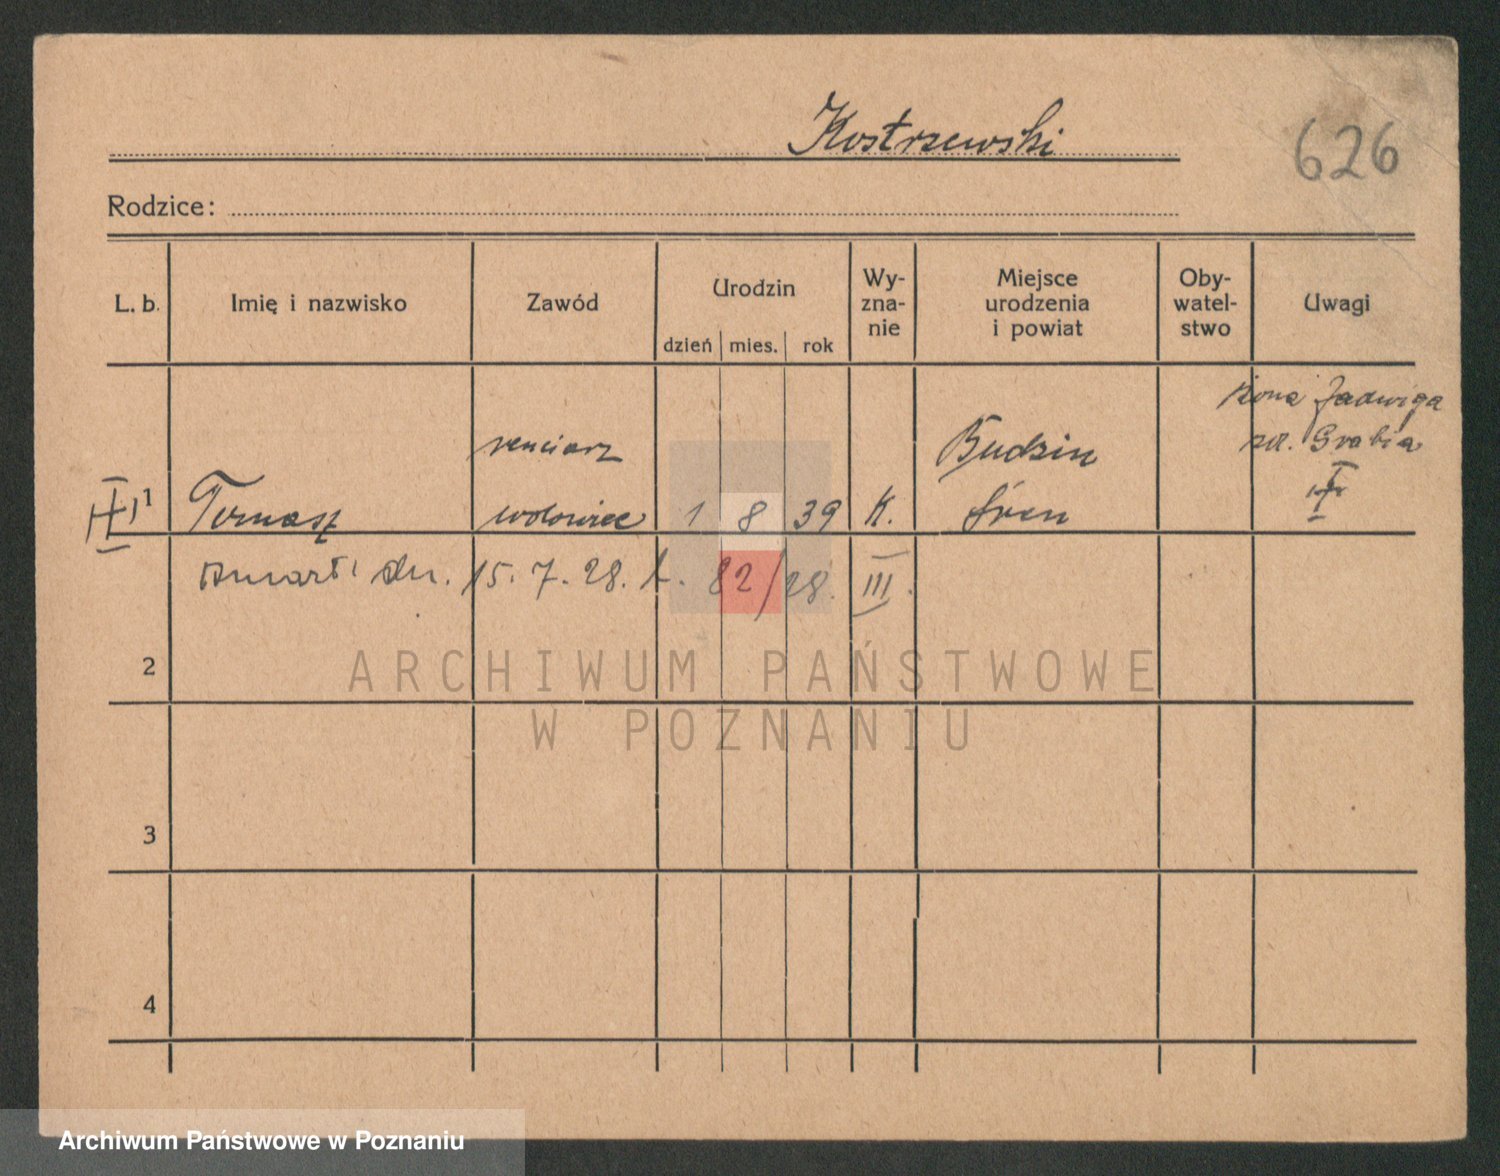 Kostrzewski
626
Rodzice:
L. b. Imię i nazwisko Zawód Urodzin dzień mies. rok Wy-zna-nie Miejsce urodzenia i powiat Oby-watel-stwo Uwagi
żona Jadwiga
renciarz Budzin zd. Grabia
1 Tomasz wdowiec 1 8 39 K. Śrem
zmarł dn. 15. 7. 28. L. 82/28. III.
2
ARCHIWUM PAŃSTWOWE
W POZNANIU
3
4
Archiwum Państwowe w Poznaniu